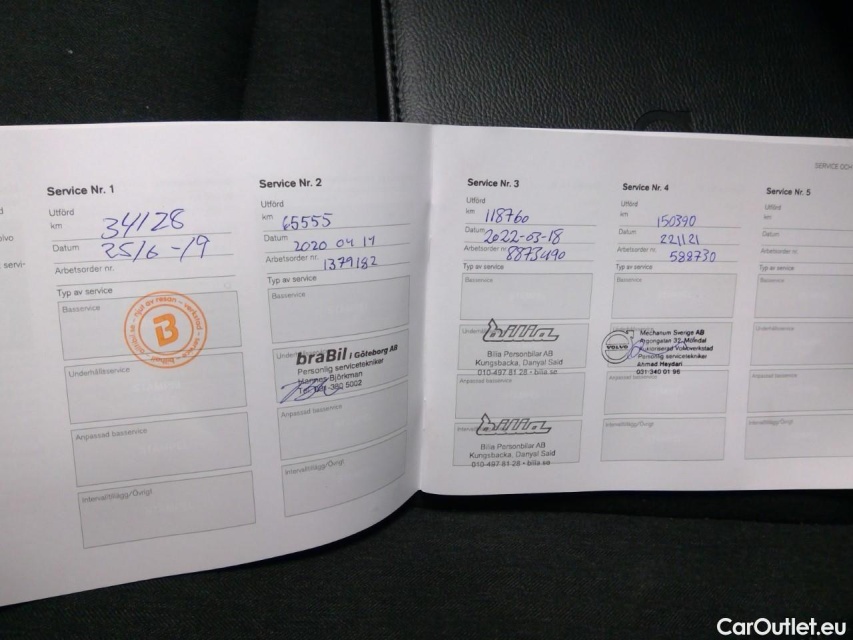 SERVICE OCH
Service Nr. 1
Utförd
km 34128
Datum 25/6-19
Arbetsorder nr.
Typ av service
Basservice
B
Underhållsservice
Anpassad basservice
Intervalltillägg/Övrigt
Service Nr. 2
Utförd
km 65555
Datum 2020 04 17
Arbetsorder nr. 1379182
Typ av service
Basservice
braBil i Göteborg AB
Personlig servicetekniker
Björkman
5002
Anpassad basservice
Intervalltillägg/Övrigt
Service Nr. 3
Utförd
km 118760
Datum 2022-03-18
Arbetsorder nr. 8873490
Typ av service
Basservice
bilia
Bilia Personbilar AB
Kungsbacka, Danyal Said
010-497 81 28 - bilia.se
Anpassad basservice
bilia
Bilia Personbilar AB
Kungsbacka, Danyal Said
010-497 81 28 - bilia.se
Service Nr. 4
Utförd
km 150390
Datum 221121
Arbetsorder nr. 588730
Typ av service
Basservice
VOLVO
Mechanum Sverige AB
Argongatan 32, Mölndal
Auktoriserad Volvoverkstad
Personlig servicetekniker
Ahmad Heydari
031-340 01 96
Anpassad basservice
Intervalltillägg/Övrigt
Service Nr. 5
Utförd
km
Datum
Arbetsorder nr.
Typ av service
Basservice
Underhållsservice
Anpassad basservice
Intervalltillägg/Övrigt
CarOutlet.eu